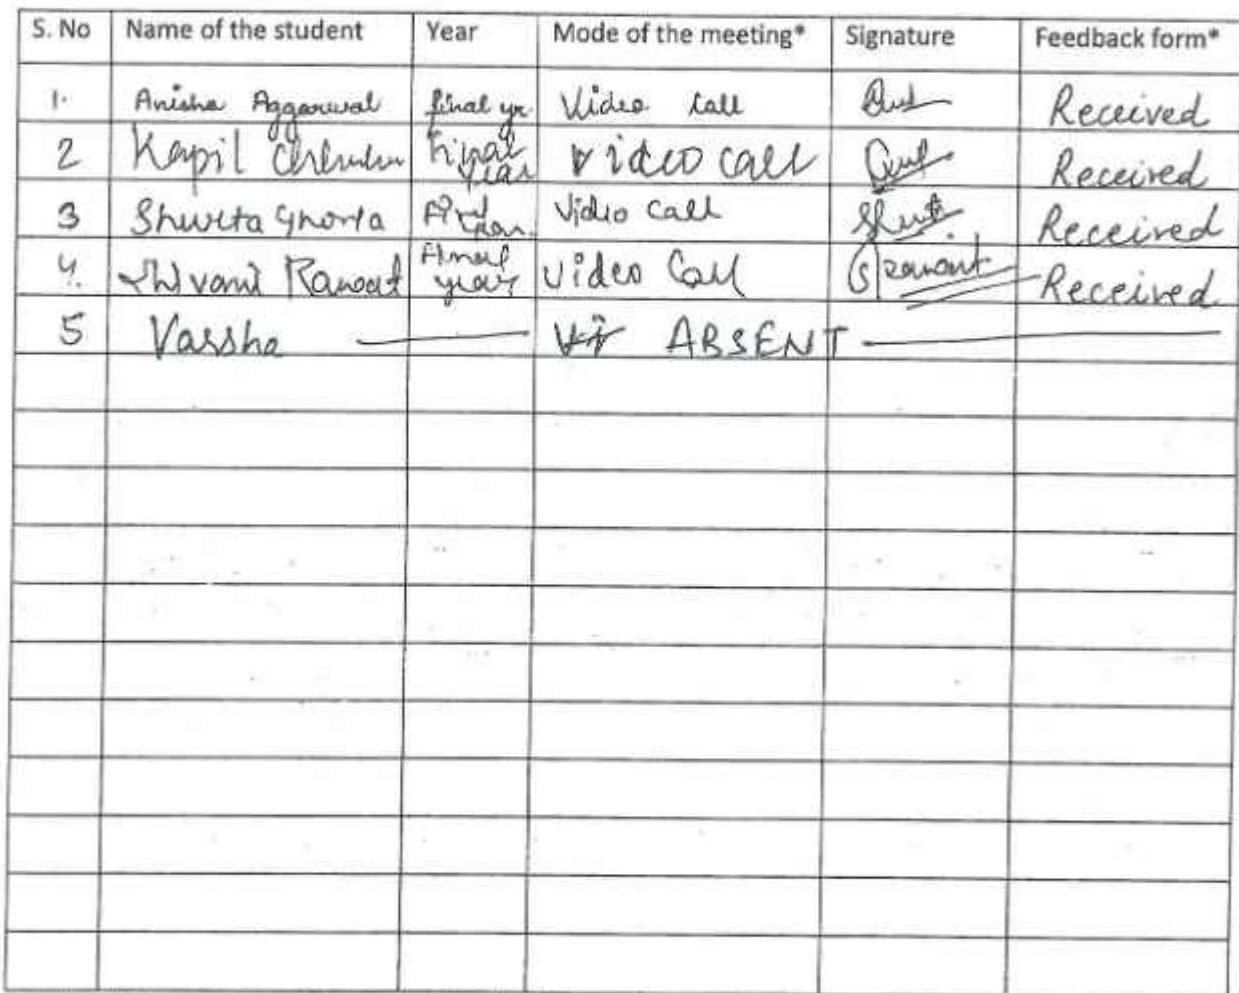 S. No Name of the student Year Mode of the meeting* Signature Feedback form*
1. Anisha Aggarwal final yr Video call Received
2 Kapil Final year Video call Received
3 Shweta Video call Received
4. Shivani Rawat Final year Video Call Srawat Received
5 Varsha ABSENT